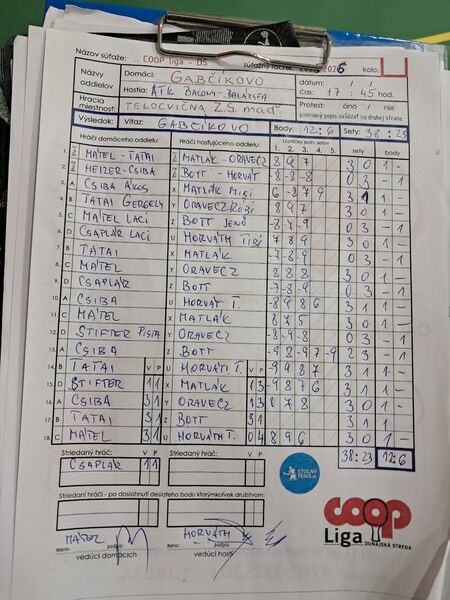 Názov súťaže: COOP liga - DS súťažný ročník: 2025 2026 kolo:
Názvy oddielov Domáci: GABČÍKOVO dátum:
Hostia: ATK BALONY-BALÁŽSEA čas: 17:45 hod.
Hracia miestnosť TELOCVIČNA Z.Š. maď. Protest: áno / nie
podrobný popis uvádzať na druhej strane
Výsledok: Víťaz: GABČÍKOVO Body: 12:6 Sety: 38:23
Hráči domáceho oddielu: Hráči hosťujúceho oddielu: Loptičky jedn. setov sety body
1. 2. 3. 4. 5.
1. MATEL - TATAI MATLÁK - ORAVECZ 8 9 7 3 0 1 -
2. HEIZER - CSIBA BOTT - HORVÁT -8 -8 -8 0 3 - 1
3. A CSIBA ÁKOS X MATLÁK MIŠI 6 -8 7 9 3 1 1 -
4. B TATAI GERGELY Y ORAVECZ 8 9 7 3 0 1 -
5. C MATEL LACI Z BOTT JENŐ -8 -7 -9 0 3 - 1
6. D CSAPLÁR LACI U HORVÁTH TIBI 7 8 9 3 0 1 -
7. B TATAI X MATLÁK -7 -8 -9 0 3 - 1
8. C MATEL Y ORAVECZ 8 8 8 3 0 1 -
9. D CSAPLÁR Z BOTT -7 -8 -9 0 3 - 1
10. A CSIBA U HORVÁT T. -8 9 8 6 3 1 1 -
11. C MATEL X MATLÁK 8 7 5 3 0 1 -
12. D STIFTER PISTA Y ORAVECZ -8 -9 0 3 - 1
13. A CSIBA Z BOTT -9 8 -9 7 -9 2 3 - 1
V P V P
14. B TATAI U HORVÁTH T. -9 9 8 7 3 1 1 -
15. D STIFTER 1 1 X MATLÁK 1 3 -9 8 7 6 3 1 1 -
16. A CSIBA 3 1 Y ORAVECZ 1 3 8 7 8 3 0 1 -
17. B TATAI 3 1 Z BOTT 3 1 3 1 1 -
18. C MATEL 3 1 U HORVÁTH T. 0 4 8 9 6 3 0 1 -
38:23 12:6
Striedaný hráč: V P Striedaný hráč: V P
CSAPLÁR 1 1
STOLNÝ TENIS
Striedaní hráči - po dosiahnutí desiateho bodu ktorýmkoľvek družstvom:
V P V P
MATEL HORVÁTH
meno: podpis: meno: podpis:
vedúci domácich vedúci hostí
coop
Liga DUNAJSKÁ STREDA